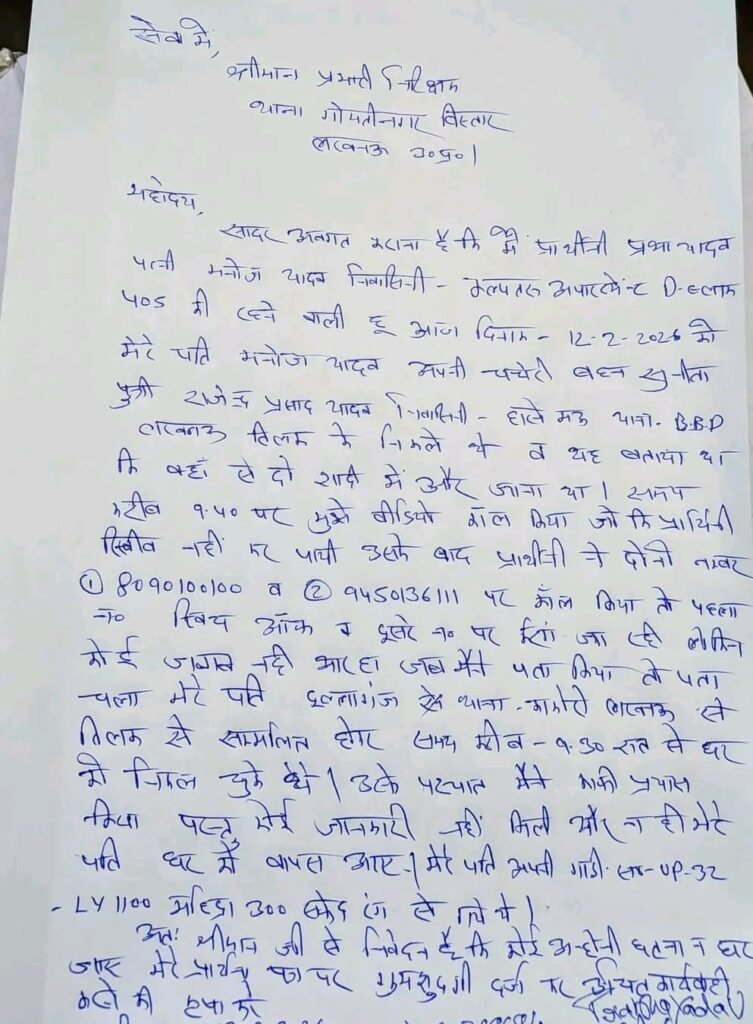 सेवा में,
श्रीमान प्रभारी निरिक्षक
थाना गोमतीनगर विस्तार
लखनऊ उ०प्र०।
महोदय,
सादर अवगत कराना है कि मैं प्रार्थीनी प्रभा यादव
पत्नी मनोज यादव निवासिनी - कल्पतरु अपार्टमेन्ट D-ब्लाक
405 की रहने वाली हू आज दिनाक - 12-2-2026 को
मेरे पति मनोज यादव अपनी चचेरी बहन सुनीता
पुत्री राजेन्द्र प्रसाद यादव निवासिनी - थाना - B.B.D
लखनऊ तिलक के निकले थे व यह बताया था
कि वहाँ से दो शादी में और जाना था। समय
करीब 9.40 पर मुझे वीडियो कॉल किया जो कि प्रार्थिनी
रिसीव नहीं कर पायी उसके बाद प्रार्थीनी ने दोनो नम्बर
① 8090100100 व ② 9450136111 पर कॉल किया तो पहला
न० स्विच ऑफ व दूसरे न० पर रिंग जा रही लेकिन
कोई जवाब नही आ रहा जब मैंने पता किया तो पता
चला मेरे पति दुल्लागंज थाना - लखनऊ से
तिलक से सम्मलित होकर समय करीब - 9.30 रात से घर
को निकल चुके थे। उसके पश्चात मैंने काफी प्रयास
किया परन्तु कोई जानकारी नहीं मिली और न ही मेरे
पति घर में वापस आए। मेरे पति अपनी गाडी UP-32
- LY 1100 महिंद्रा 300 सफेद रंग से गये थे।
अतः श्रीमान जी से निवेदन है कि कोई अनहोनी घटना न घट
जाए मेरे प्रार्थना पत्र पर गुमशुदगी दर्ज कर उचित कार्यवाही
करने की कृपा करे